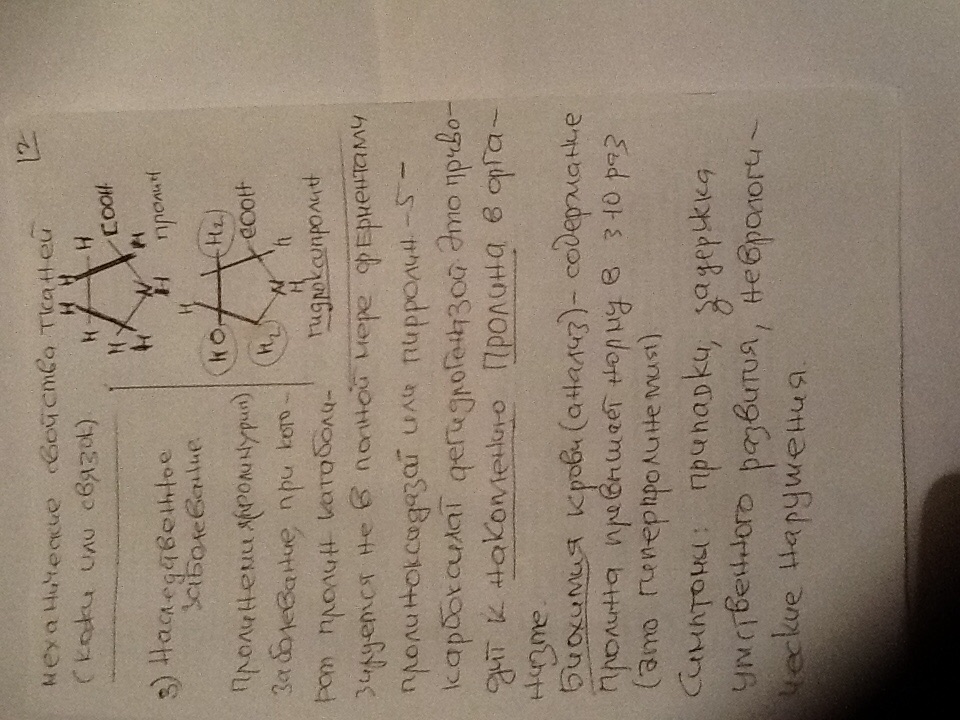 механические свойства тканей 12
(кожи или связок).
3) Наследственное
заболевание
H H H
H H
H COOH
H N H
H
пролин
H
HO H2
H2 COOH
N H
H
гидроксипролин
Пролинемия(пролинурия)
заболевание, при кото-
ром пролин катаболи-
зируется не в полной мере ферментами
пролиноксидазой или пирролин-5-
карбоксилат дегидрогеназой. Это приво-
дит к накоплению Пролина в орга-
низме.
Биохимия крови(анализ)-содержание
Пролина превышает норму в 3-10 раз
(это гиперпролинемия)
Симптомы: припадки, задержка
умственного развития, неврологи-
ческие нарушения.